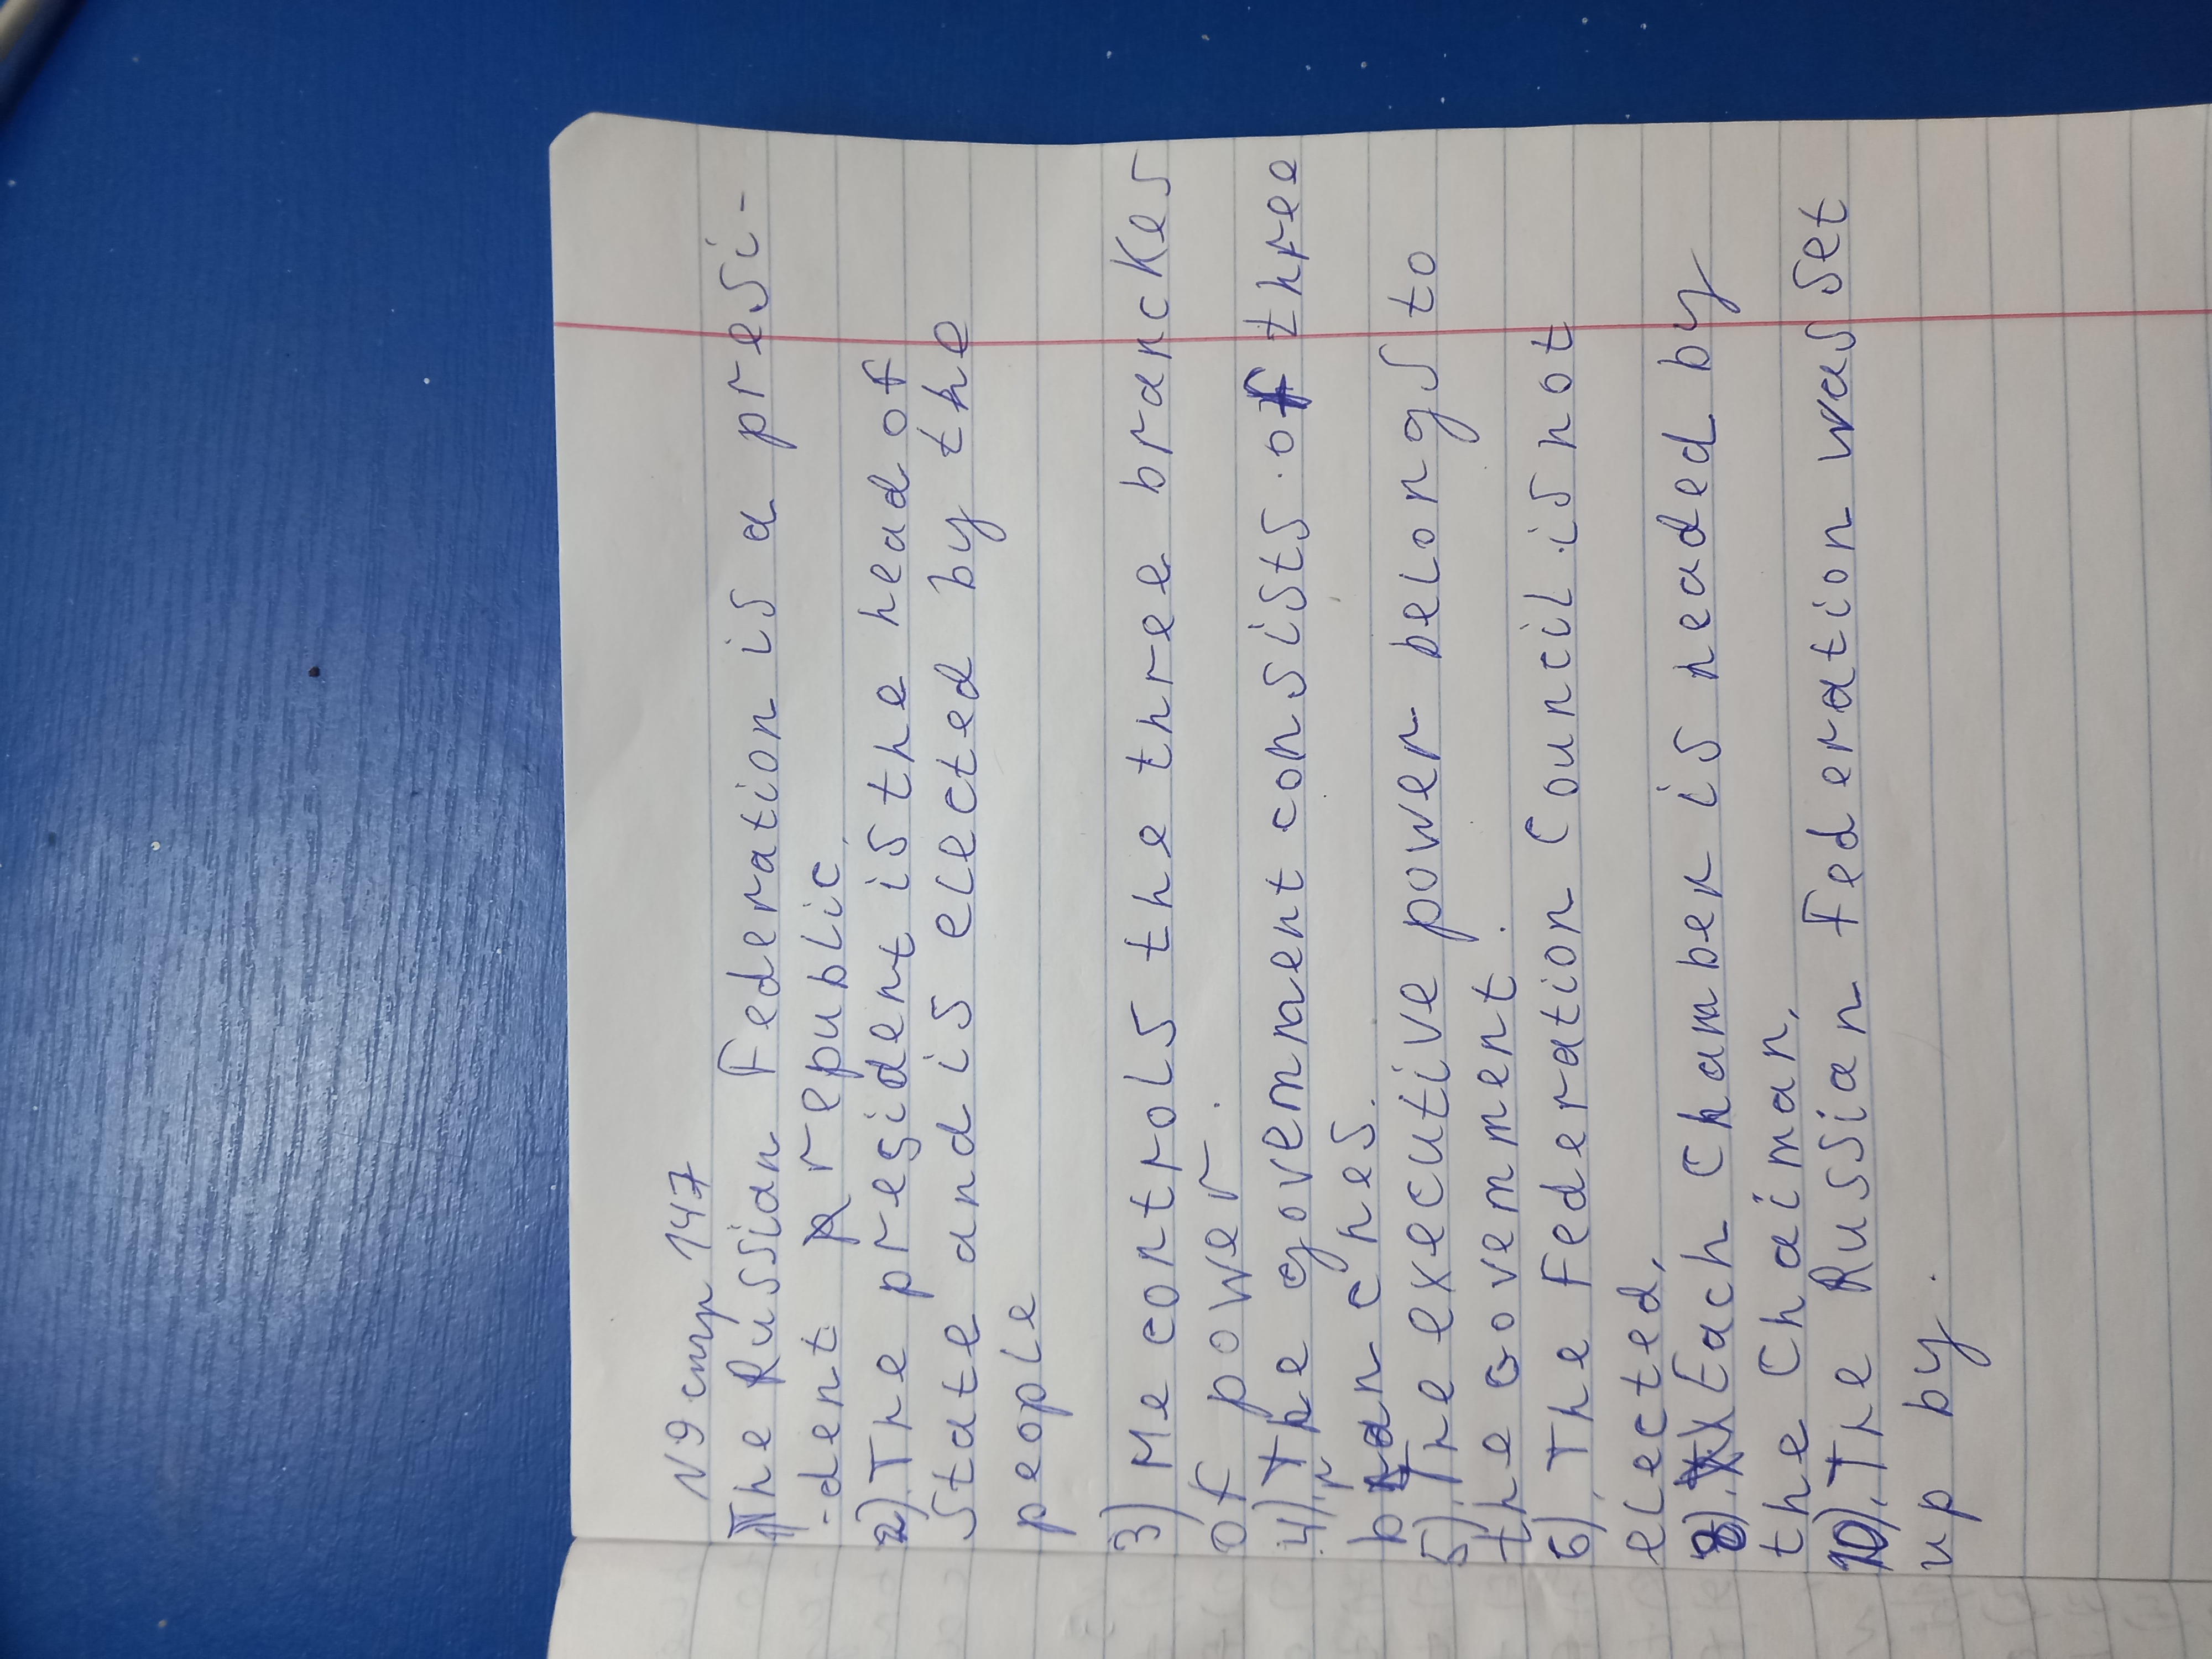 N9 стр 147
1) The Russian Federation is a presi-
-dent republic
2) The president is the head of
state and is elected by the
people
3) He controls the three branckes
of power.
4) The govemment consists of three
branches.
5) The executive power belongs to
the Govemment.
6) The Federation Council is not
elected.
8) Each Chamber is headed by
the Chaiman.
10) The Russian Federation was set
up by.